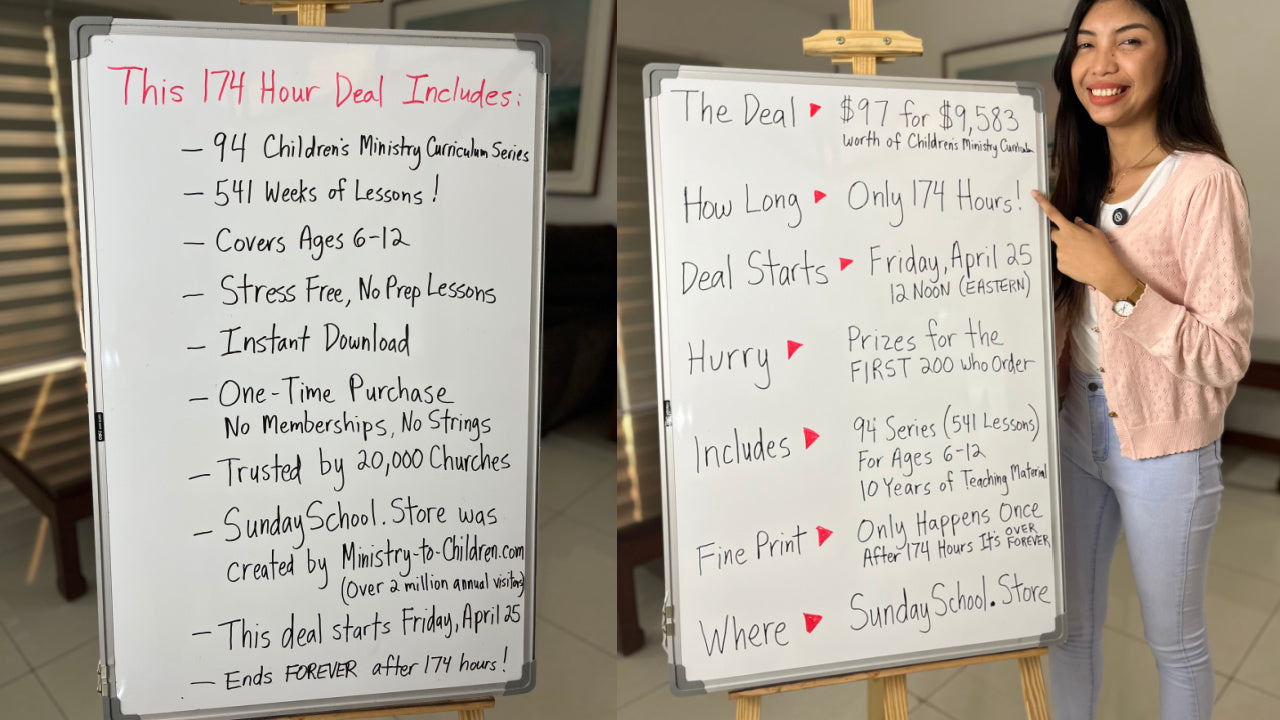 This 174 Hour Deal Includes:
– 94 Children's Ministry Curriculum Series
– 541 Weeks of Lessons!
– Covers Ages 6-12
– Stress Free, No Prep Lessons
– Instant Download
– One-Time Purchase
No Memberships, No Strings
– Trusted by 20,000 Churches
– SundaySchool.Store was
created by Ministry-to-Children.com
(Over 2 million annual visitors)
– This deal starts Friday, April 25
– Ends FOREVER after 174 hours!
The Deal ▶ $97 for $9,583
worth of Children's Ministry Curriculum
How Long ▶ Only 174 Hours!
Deal Starts ▶ Friday, April 25
12 NOON (EASTERN)
Hurry ▶ Prizes for the
FIRST 200 who Order
Includes ▶ 94 Series (541 Lessons)
For Ages 6-12
10 Years of Teaching Material
Fine Print ▶ Only Happens Once
After 174 Hours It's OVER FOREVER
Where ▶ SundaySchool.Store